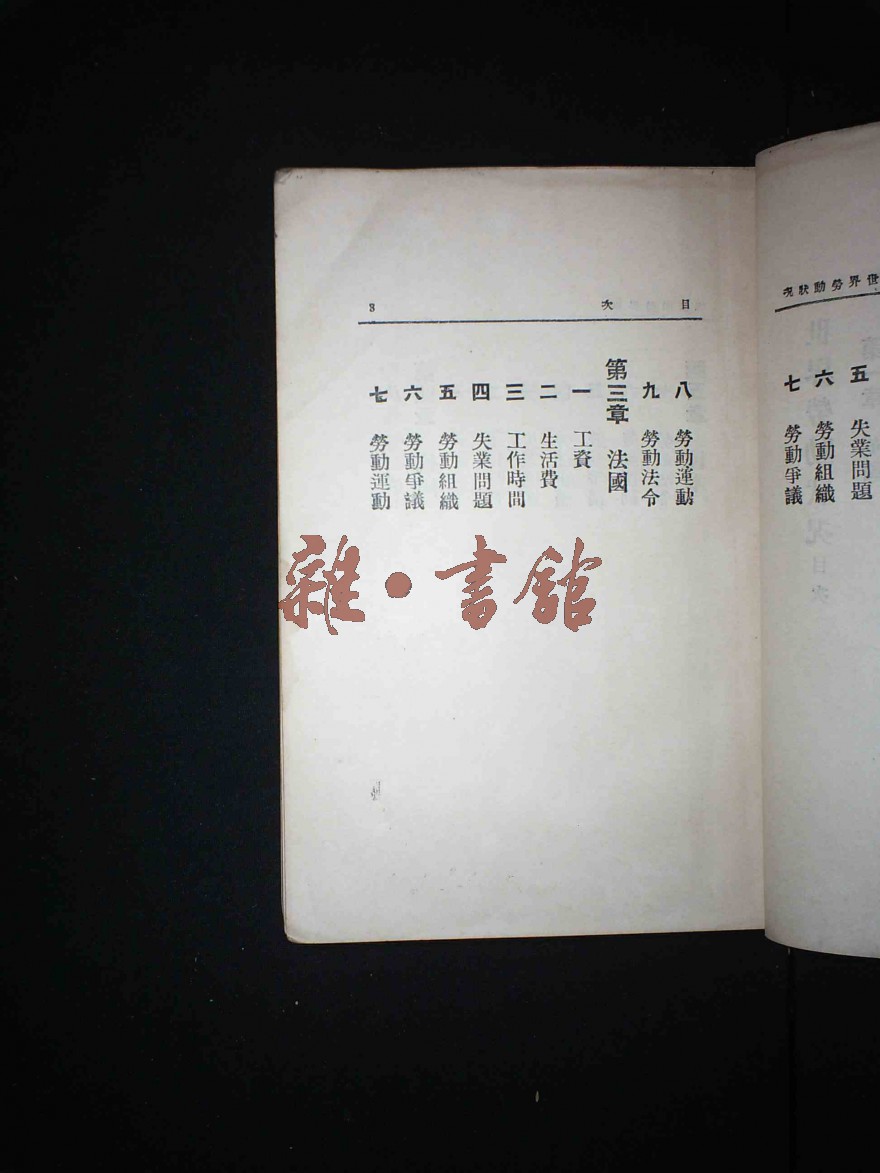 世界勞動狀況
五 失業問題
六 勞動組織
七 勞動爭議
目次 3
八 勞動運動
九 勞動法令
第三章 法國
一 工資
二 生活費
三 工作時間
四 失業問題
五 勞動組織
六 勞動爭議
七 勞動運動
雜·書館